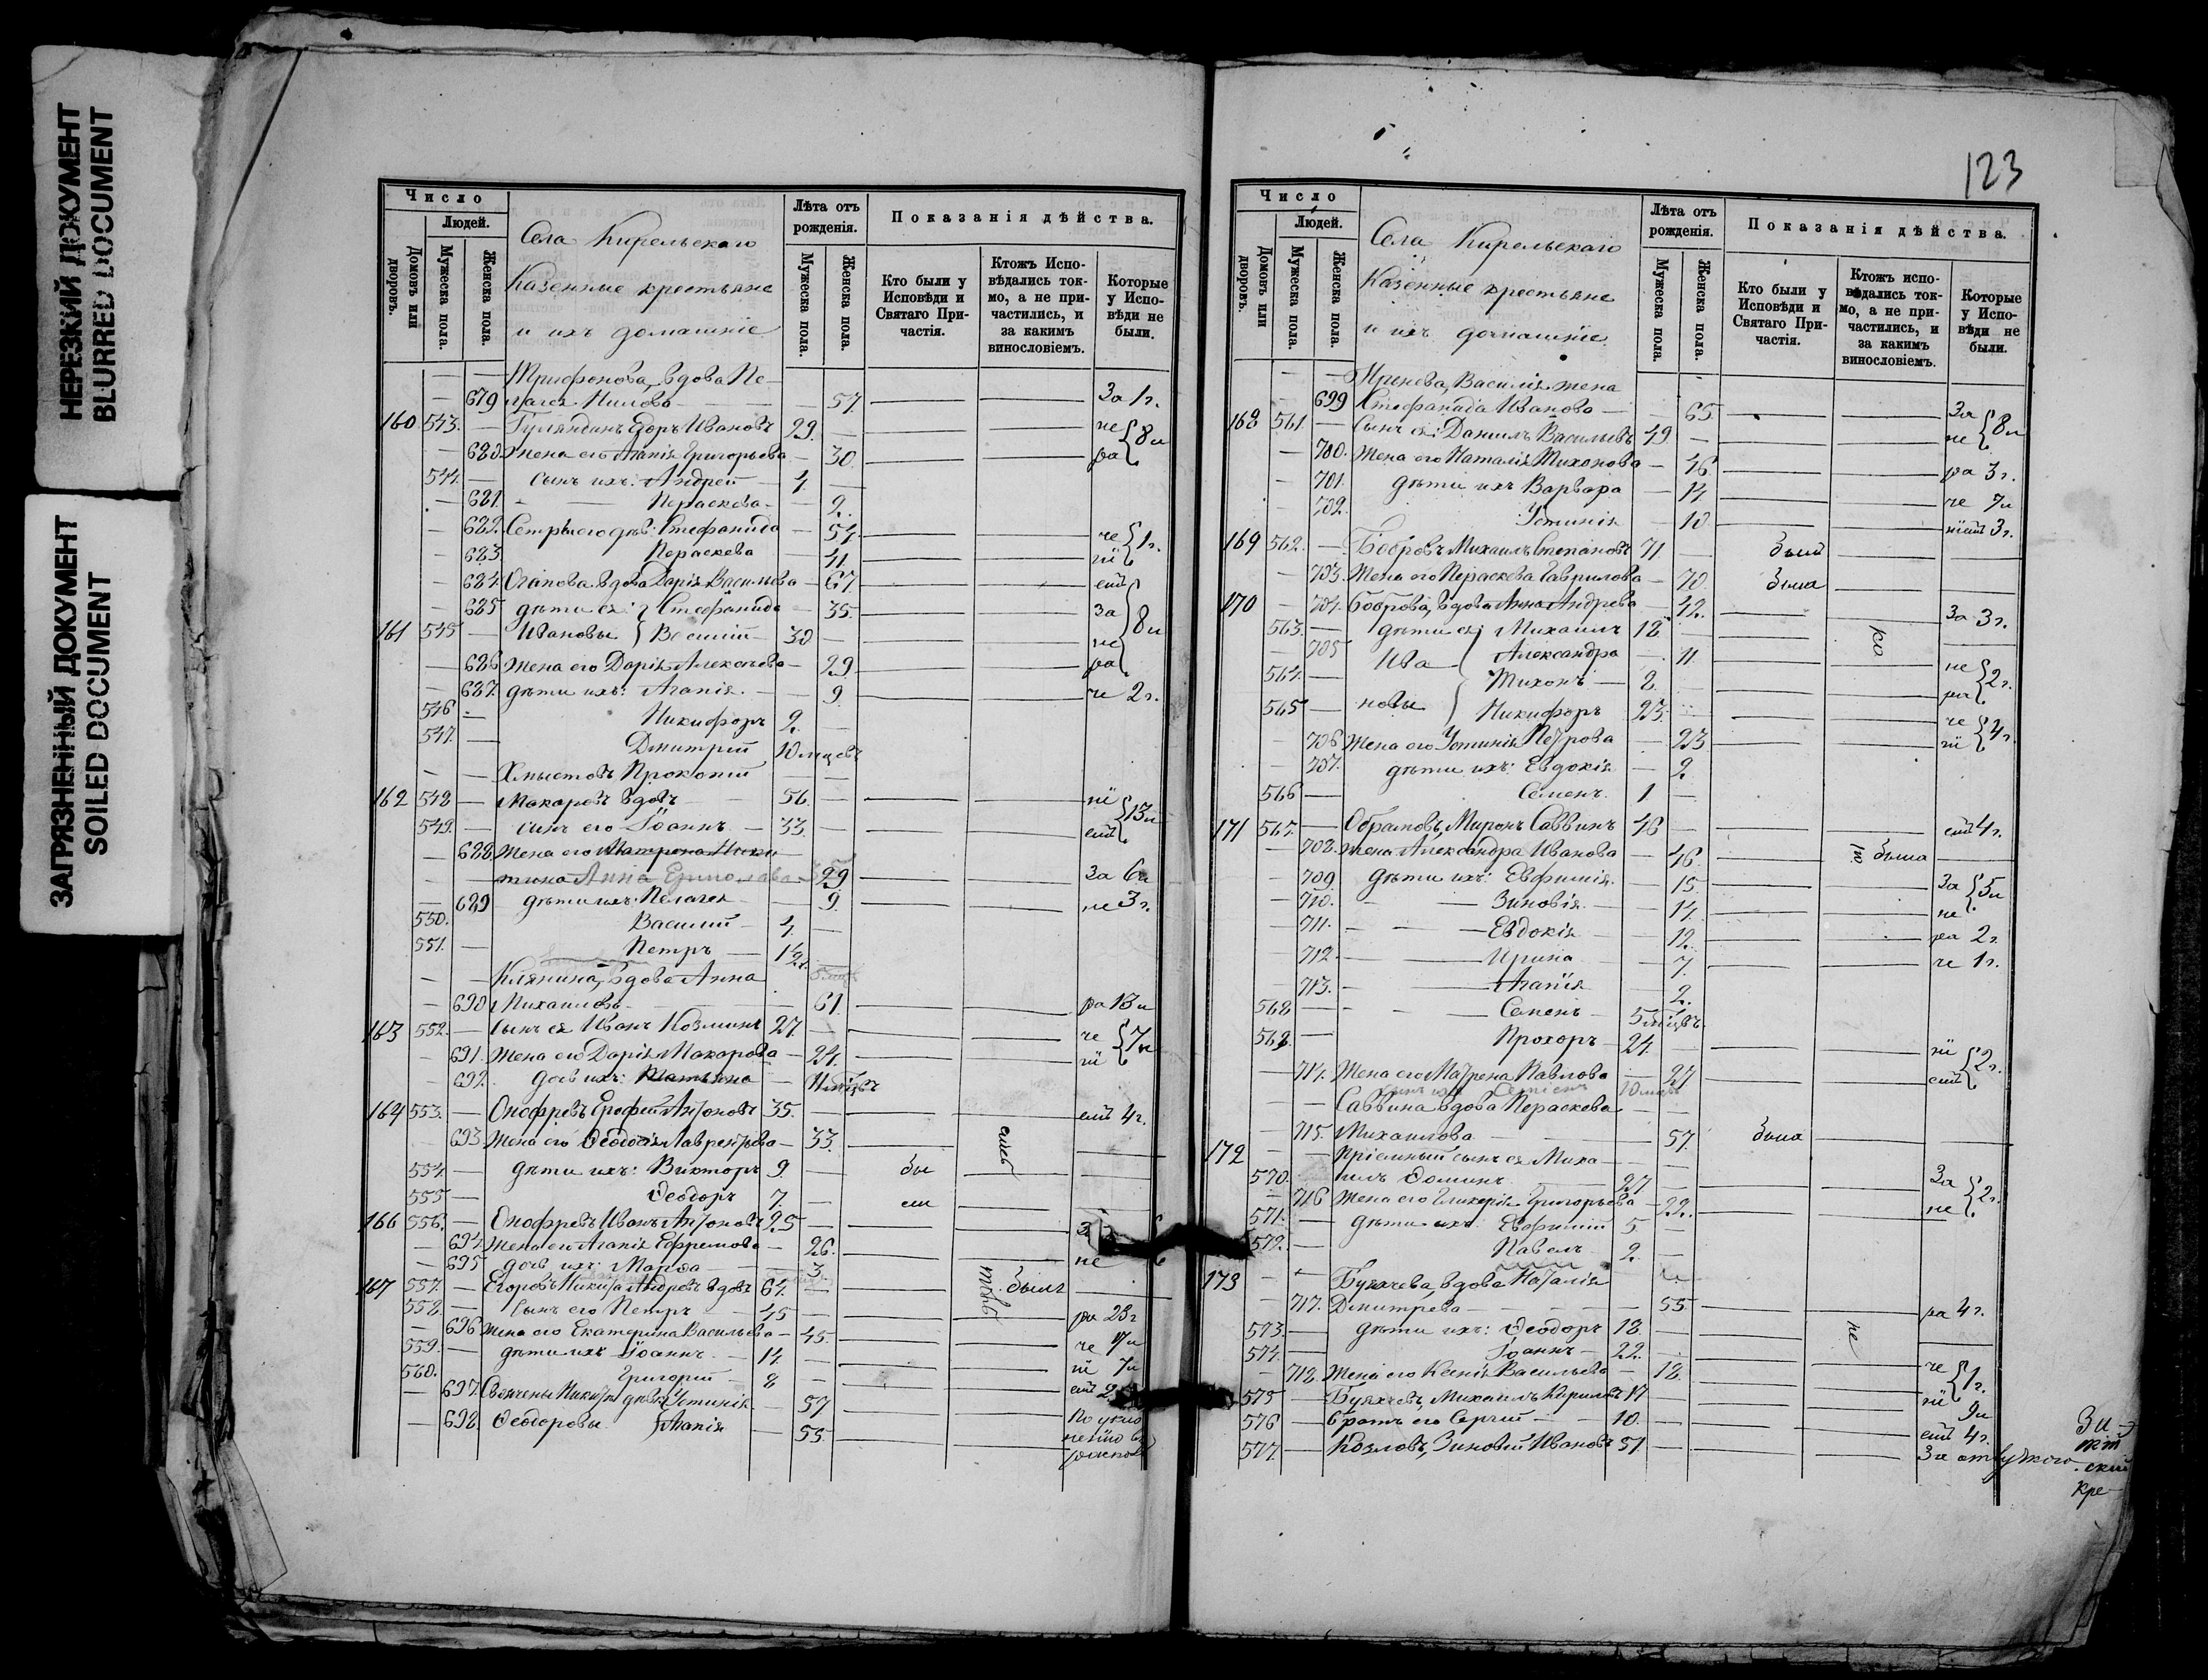 НЕРЕЗКИЙ ДОКУМЕНТ
BLURRED DOCUMENT
ЗАГРЯЗНЕННЫЙ ДОКУМЕНТ
SOILED DOCUMENT
Число
Людей.
Домовъ или дворовъ.
Мужеска пола.
Женска пола.
Села Кирельскаго
Казенные крестьяне
и ихъ домашніе
Лѣта отъ рожденія.
Мужеска пола.
Женска пола.
Показанія дѣйства.
Кто были у Исповѣди и Святаго Причастія.
Ктожъ Исповѣдались токмо, а не причастились, и за какимъ винословіемъ.
Которые у Исповѣди не были.
Трифонова, вдова Пе-
679 лагея Нилова 57 За 1 г.
160 543 Гуляндинъ Егоръ Ивановъ 29 не 8 и
680 Жена его Агапія Григорьева 30 ра
544 сынъ ихъ: Андрей 4
681 Параскева 2
682 Сестры его дѣв: Стефанида 54 че 1 г.
683 Параскева 41 ні
684 вдова Дарія Васильева 67 емъ
685 дѣти ея: Стефанида 35 За 8 и
161 545 Ивановы Василій 30 не
686 Жена его Дарія Алексѣева 29 ра
687 дѣти ихъ: Агапія 9 че 2 г.
546 Никифоръ 2
547 Дмитрій 10 мцевъ
Хмыстовъ Прокопій
162 548 Макаровъ вдовъ 56 ні 13 и
549 сынъ его Іоаннъ 33 емъ
688 Жена его Матрона Ники
тина Анна 29 За 6 и
689 дѣти ихъ: Пелагея 9 не 3 г.
550 Василій 4
551 Петръ 1½
Клянина, вдова Анна
690 Михаилова 61 ра 13 и
163 552 Сынъ ея Иванъ Козминъ 27 че 7 и
691 Жена его Дарія Макарова 24 ні
692 дочь ихъ: Татьяна 11 мцевъ
164 553 Онофревъ Ерофей Антоновъ 35 емъ 4 г.
693 Жена его Ѳеодосія Лаврентьева 33
554 дѣти ихъ: Викторъ 9 бы
555 Ѳеодоръ 7 ли
166 556 Онофревъ Иванъ Антоновъ 25
694 Жена его Агапія Ефремова 26 не
695 дочь ихъ: Марѳа 3
167 557 Егоровъ Никита Андревъ вдовъ 64 былъ
558 Сынъ его Петръ 45 ра 23 г
696 Жена его Екатерина Васильева 45 че 17 и
559 дѣти ихъ Іоаннъ 14 ні 7 и
560 Григорій 8 емъ 2
697 Никиты дѣвк Устинія 57
698 Ѳеодоровы Агапія 55
123
Число
Людей.
Домовъ или дворовъ.
Мужеска пола.
Женска пола.
Села Кирельскаго
Казенные крестьяне
и ихъ домашніе
Лѣта отъ рожденія.
Мужеска пола.
Женска пола.
Показанія дѣйства.
Кто были у Исповѣди и Святаго Причастія.
Ктожъ исповѣдались токмо, а не причастились, и за какимъ винословіемъ.
Которые у Исповѣди не были.
Василія жена
699 Стефанида Иванова 65 За 8 и
168 561 Сынъ ея: Даніилъ Васильевъ 49 не
700 Жена его Наталія Тихонова 46 ра 3 г.
701 дѣти ихъ Варвара 14 че 7 и
702 Устинія 10 ніемъ 3 г.
169 562 Бобровъ Михаилъ Степановъ 71 былъ
703 Жена его Параскева Гаврилова 70 была
170 704 Боброва, вдова Анна Андрева 42 За 3 г.
563 дѣти ея Михаилъ 18
705 Ива Александра 11 не 2 г.
564 Тихонъ 8 ра
565 новы Никифоръ 23 че 4 г.
706 Жена его Устинія Петрова 23 ні
707 дѣти ихъ: Евдокія 2
566 Семенъ 1
171 567 Обрамовъ, Миронъ Саввинъ 46 емъ 4 г.
708 Жена Александра Иванова 46 была
709 дѣти ихъ: Евфимія 15 За 5 и
710 Зиновія 14 не
711 Евдокія 12 ра 2 г.
712 Ирина 7 че 1 г.
713 Агапія 2
568 Семенъ 5 мѣцвъ
569 Прохоръ 24 ні 2 г.
714 Жена его Матрена Павлова 27 емъ
Саввина вдова Параскева
715 Михаилова 57 была
172 Пріемный сынъ ея Миха-
570 илъ Ѳоминъ 27 За 2 г.
716 Жена его Гликерія Григорьева 22 не
571 дѣти ихъ Евфимій 5
572 Павелъ 2
173 Буячева, вдова Наталія
717 Дмитрева 55 ра 4 г.
573 дѣти ихъ: Ѳеодоръ 18
574 Іоаннъ 22 че 1 г.
718 Жена его Ксенія Васильева 18 ні
575 Буячевъ, Михаилъ Кириловъ 17 9 и
576 братъ его Сергій 10 емъ 4 г.
577 Козловъ, Зиновій Ивановъ 51 За от